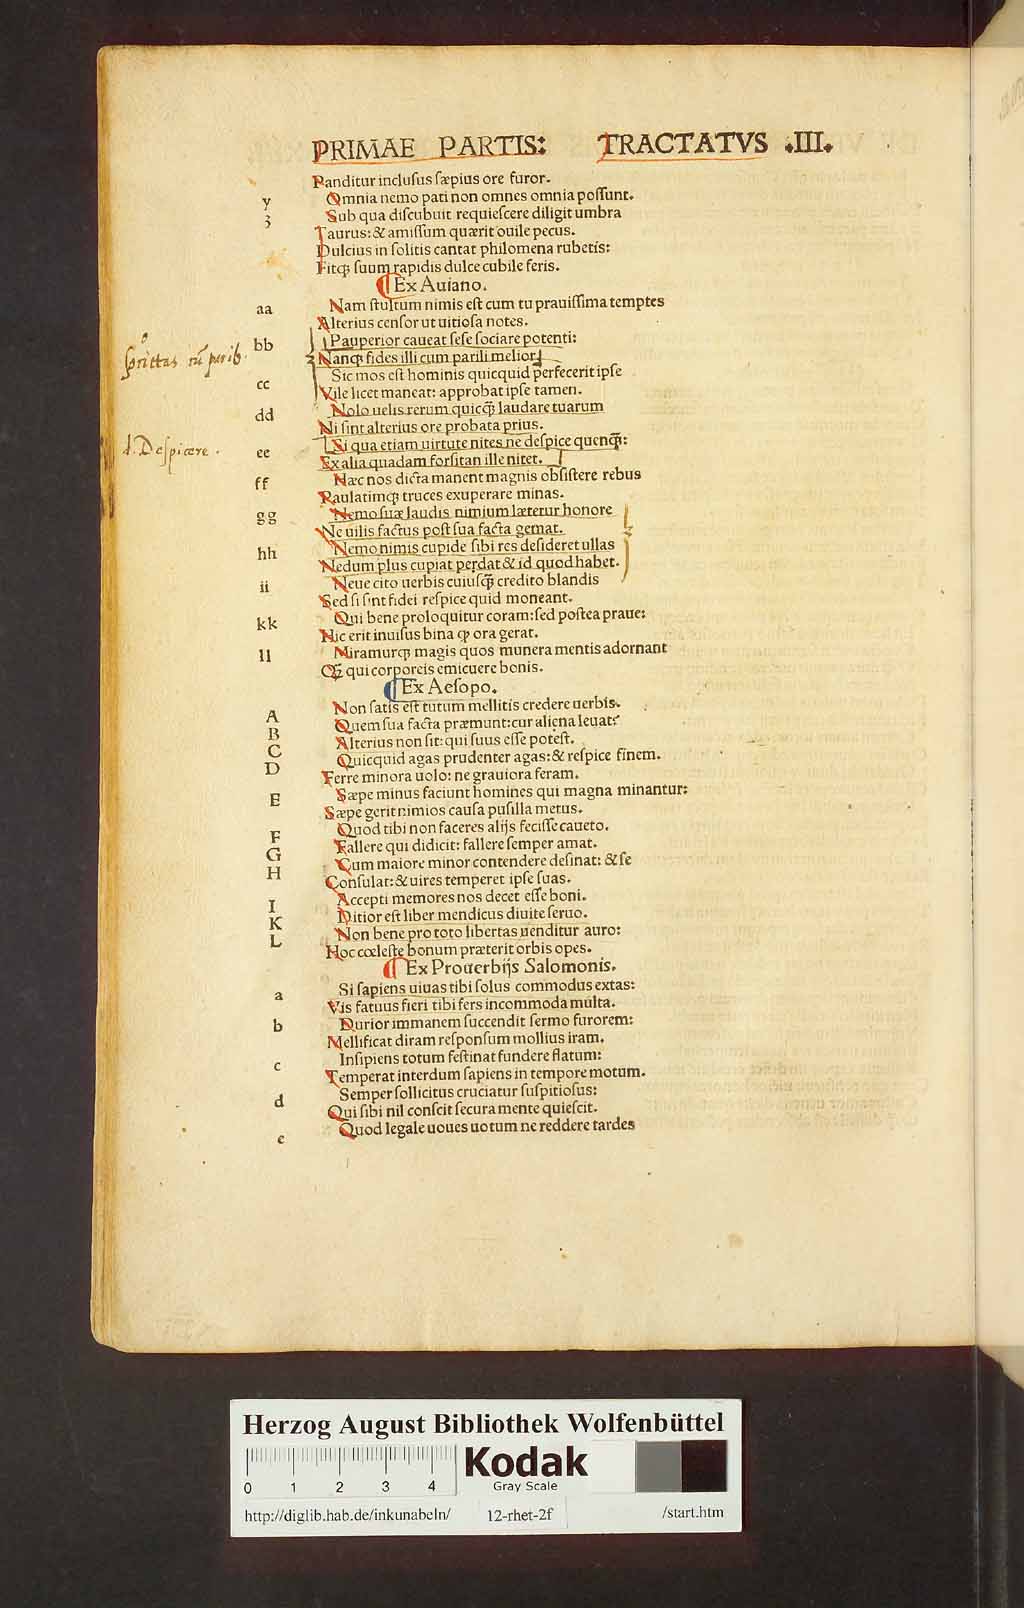 PRIMAE PARTIS: TRACTATVS .III.
Panditur inclusus sæpius ore furor.
y Omnia nemo pati non omnes omnia possunt.
ʒ Sub qua discubuit requiescere diligit umbra
Taurus: & amissum quærit ouile pecus.
Dulcius in solitis cantat philomena rubetis:
Fitqȝ suum rapidis dulce cubile feris.
¶ Ex Auiano.
aa Nam stultum nimis est cum tu prauissima temptes
Alterius censor ut uitiosa notes.
bb Pauperior caueat sese sociare potenti:
Nanqȝ fides illi cum parili melior
cc Sic mos est hominis quicquid perfecerit ipse
Vile licet maneat: approbat ipse tamen.
dd Nolo uelis rerum quicq̃ laudare tuarum
Ni sint alterius ore probata prius.
d. Despicere .
ee Si qua etiam uirtute nites ne despice quenq̃:
Ex alia quadam forsitan ille nitet.
ff Hæc nos dicta manent magnis obsistere rebus
Paulatimqȝ truces exuperare minas.
gg Nemo suæ laudis nimium lætetur honore
Ne uilis factus post sua facta gemat.
hh Nemo nimis cupide sibi res desideret ullas
Nedum plus cupiat perdat & id quod habet.
ii Neue cito uerbis cuiusq̃ credito blandis
Sed si sint fidei respice quid moneant.
kk Qui bene proloquitur coram: sed postea praue:
Hic erit inuisus bina qȝ ora gerat.
ll Miramurqȝ magis quos munera mentis adornant
Q̃ qui corporeis emicuere bonis.
¶ Ex Aesopo.
A Non satis est tutum mellitis credere uerbis.
B Quem sua facta præmunt: cur aliena leuat?
C Alterius non sit: qui suus esse potest.
D Quicquid agas prudenter agas: & respice finem.
Ferre minora uolo: ne grauiora feram.
E Sæpe minus faciunt homines qui magna minantur:
Sæpe gerit nimios causa pusilla metus.
F Quod tibi non faceres alijs fecisse caueto.
G Fallere qui didicit: fallere semper amat.
H Cum maiore minor contendere desinat: & se
Consulat: & uires temperet ipse suas.
I Accepti memores nos decet esse boni.
K Ditior est liber mendicus diuite seruo.
L Non bene pro toto libertas uenditur auro:
Hoc cœleste bonum præterit orbis opes.
¶ Ex Prouerbijs Salomonis.
a Si sapiens uiuas tibi solus commodus extas:
Vis fatuus fieri tibi fers incommoda multa.
b Durior immanem succendit sermo furorem:
Mellificat diram responsum mollius iram.
c Insipiens totum festinat fundere flatum:
Temperat interdum sapiens in tempore motum.
d Semper sollicitus cruciatur suspitiosus:
Qui sibi nil conscit secura mente quiescit.
e Quod legale uoues uotum ne reddere tardes
Herzog August Bibliothek Wolfenbüttel
0 1 2 3 4
Kodak
Gray Scale
http://diglib.hab.de/inkunabeln/ 12-rhet-2f /start.htm